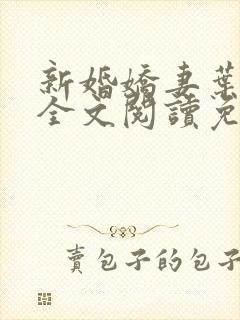 新婚嬌妻葉
全文閱讀免
賣包子的包子